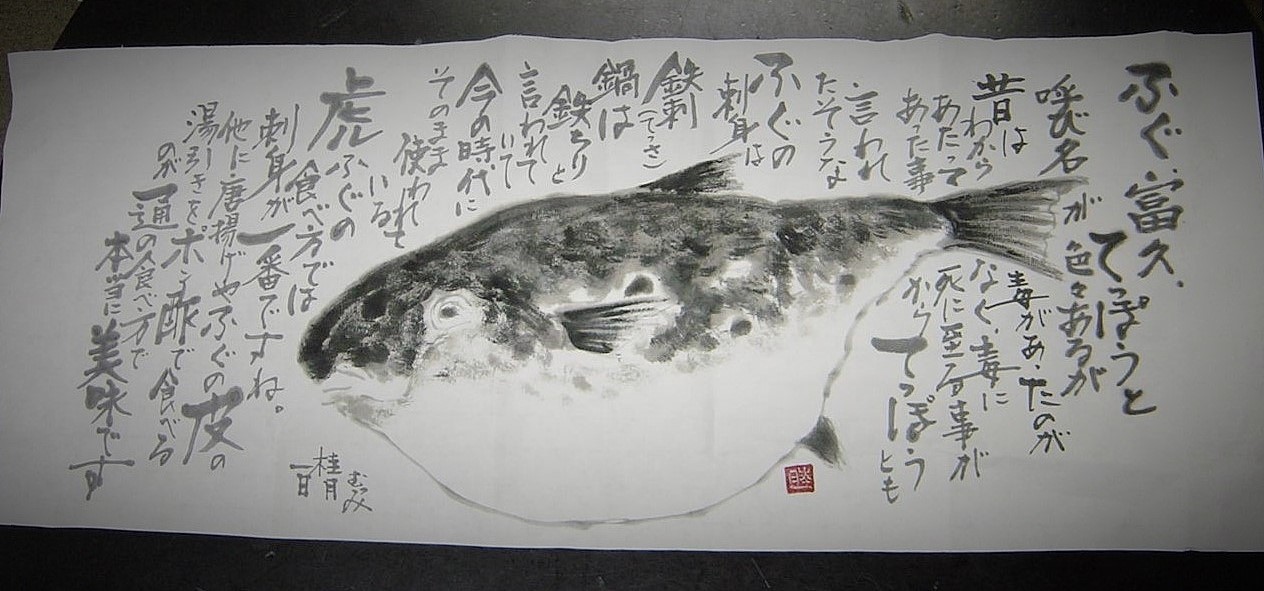 ふぐ、富久、
てっぽうと
呼び名が色々あるが
昔は毒があったのが
わからなく、毒に
あたって死に至る事が
あった事からてっぽうとも
言われ
たそうな
ふぐの
刺身は
鉄刺(てっさ)
鍋は
鉄ちりと
言われて
いて
今の時代に
そのまま
使われて
いる
虎ふぐの
食べ方では
刺身が一番ですね。
他に唐揚げやふぐの皮の
湯引きをポン酢で食べる
のが一通の食べ方で
本当に美味です
むつみ
桂月
一日